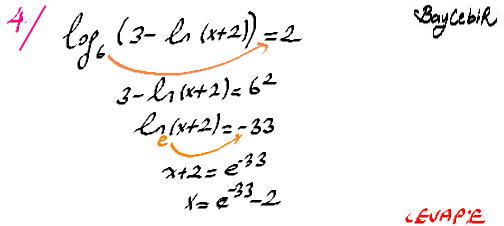 4/ log₆ (3 - ln (x+2)) = 2 BayCebiR
3 - ln(x+2) = 6²
ln(x+2) = -33
e
x+2 = e⁻³³
x = e⁻³³ - 2
CEVAP:E